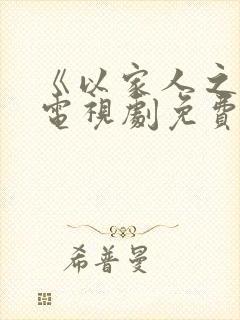 《以家人之
電視劇免費
希普曼